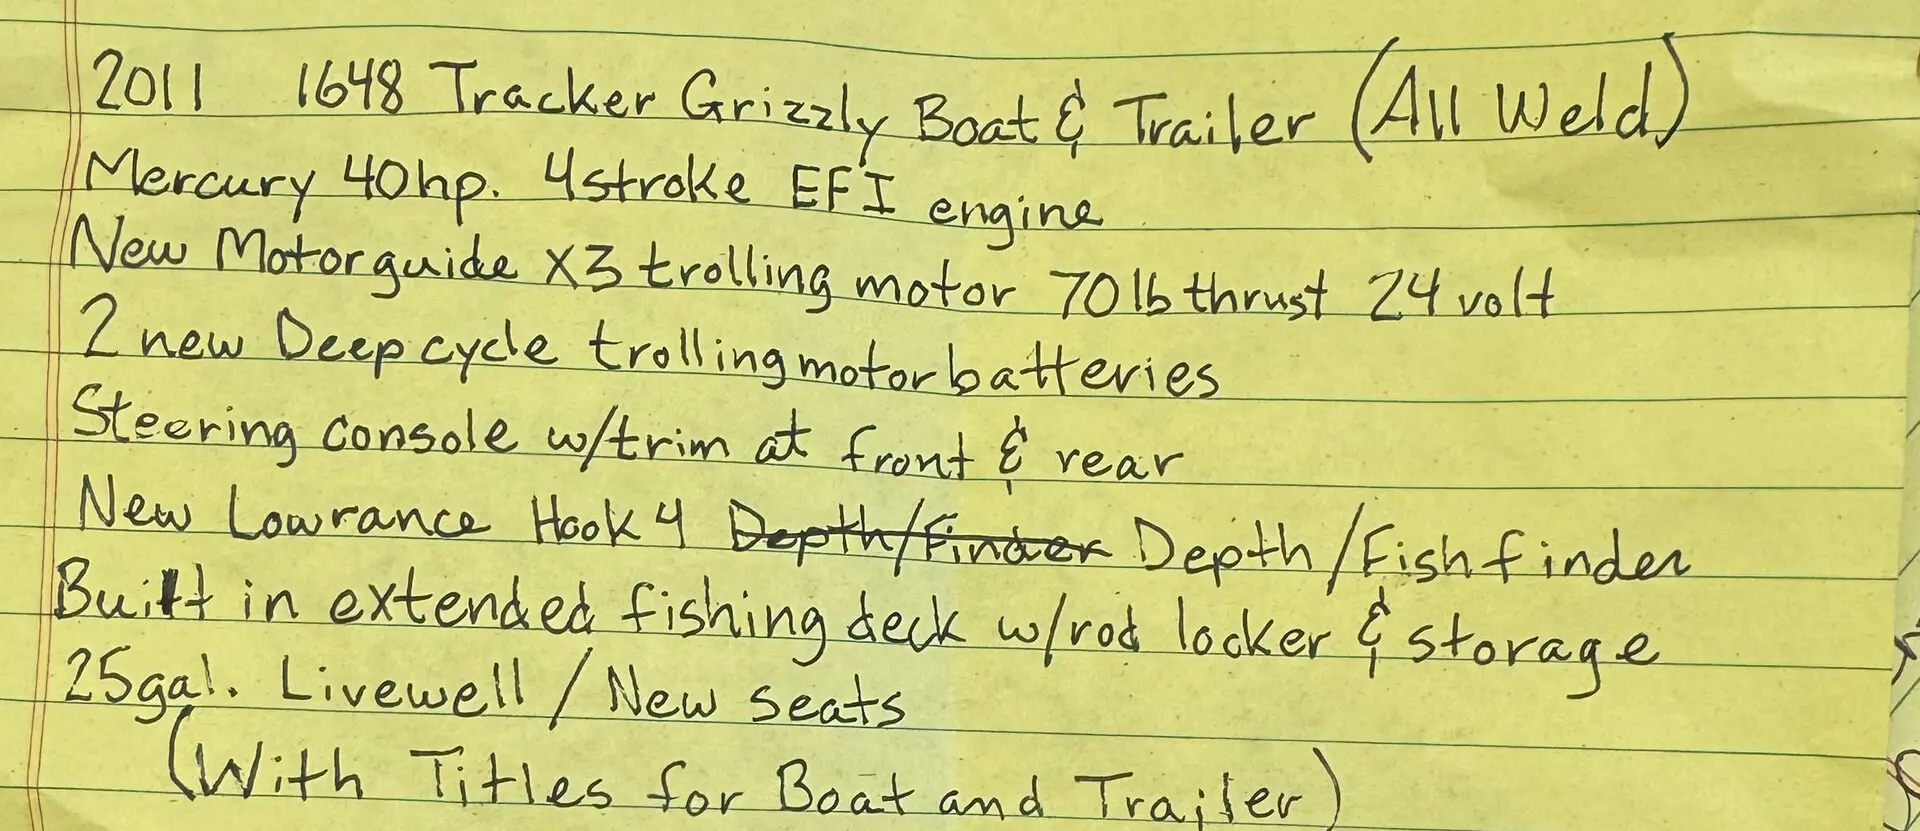 2011 1648 Tracker Grizzly Boat & Trailer (All Weld)
Mercury 40hp. 4stroke EFI engine
New Motorguide X3 trolling motor 70lb thrust 24 volt
2 new Deep cycle trolling motor batteries
Steering console w/trim at front & rear
New Lowrance Hook 4 Depth/Finder Depth/Fish finder
Built in extended fishing deck w/rod locker & storage
25gal. Livewell / New seats
(With Titles for Boat and Trailer)